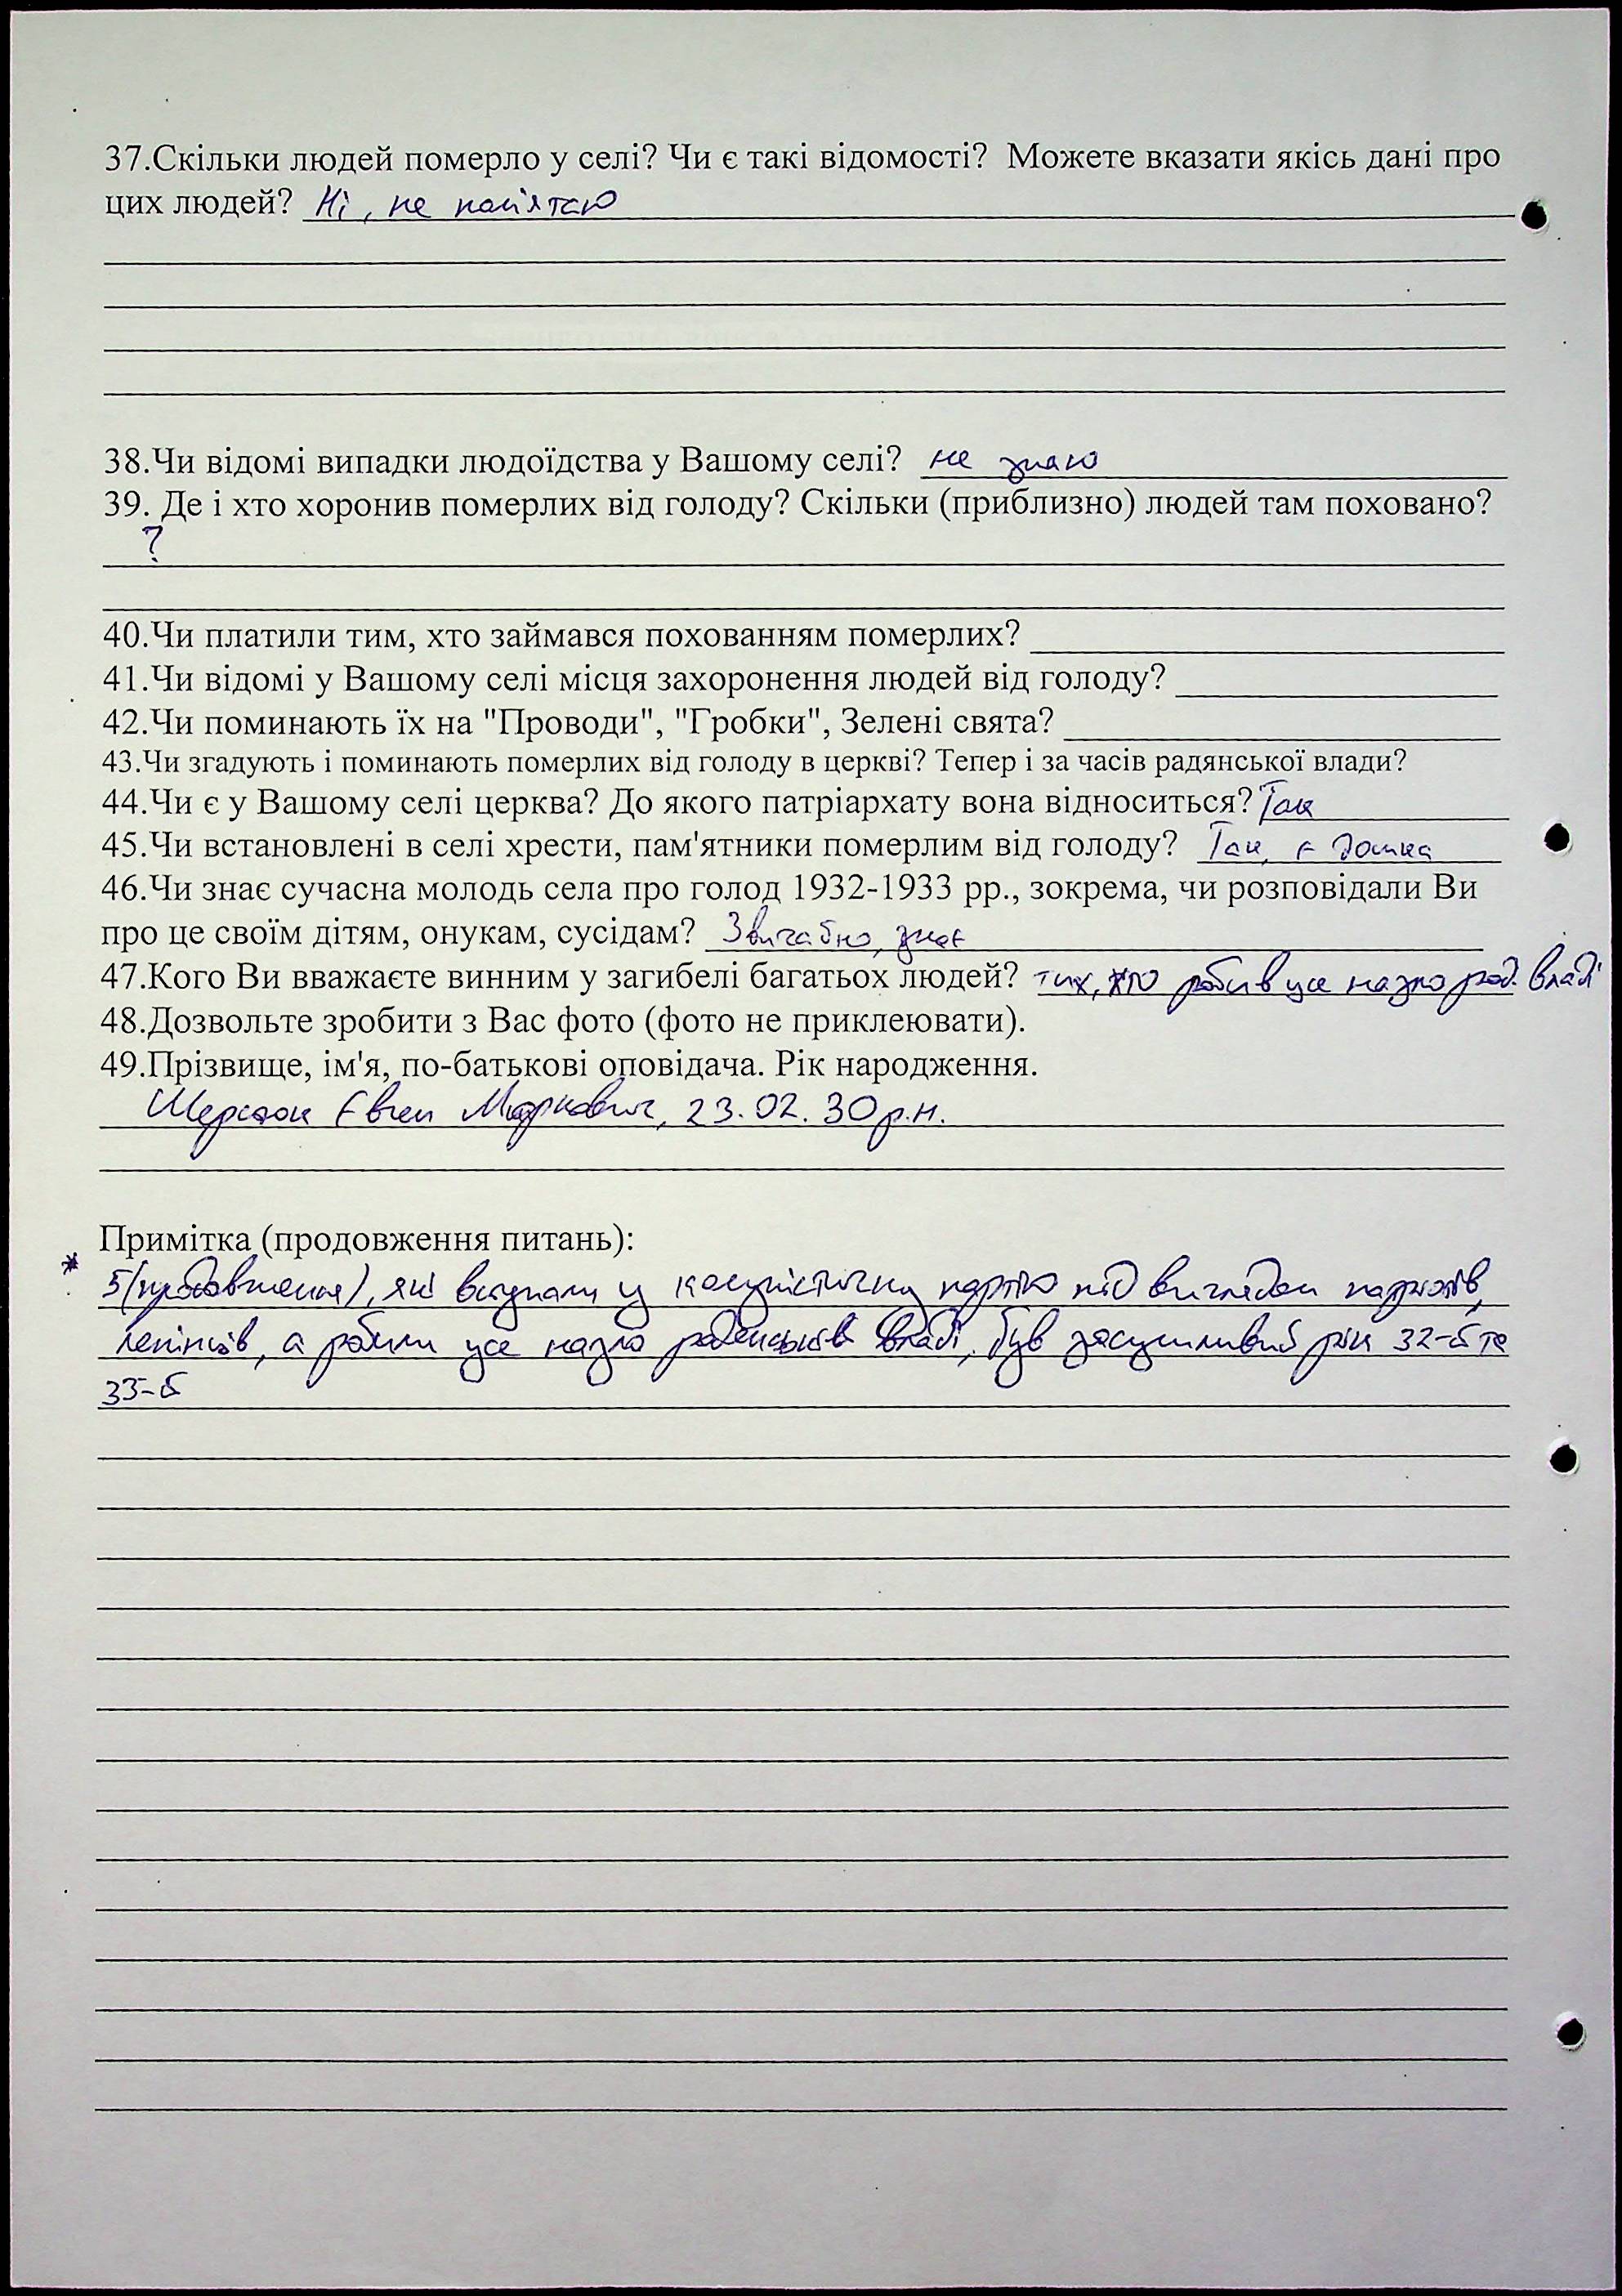 37.Скільки людей померло у селі? Чи є такі відомості? Можете вказати якісь дані про
цих людей? Ні, не пам'ятаю
38.Чи відомі випадки людоїдства у Вашому селі? не знаю
39. Де і хто хоронив померлих від голоду? Скільки (приблизно) людей там поховано?
?
40.Чи платили тим, хто займався похованням померлих?
41.Чи відомі у Вашому селі місця захоронення людей від голоду?
42.Чи поминають їх на "Проводи", "Гробки", Зелені свята?
43.Чи згадують і поминають померлих від голоду в церкві? Тепер і за часів радянської влади?
44.Чи є у Вашому селі церква? До якого патріархату вона відноситься? Так
45.Чи встановлені в селі хрести, пам'ятники померлим від голоду? Так, є дошка
46.Чи знає сучасна молодь села про голод 1932-1933 рр., зокрема, чи розповідали Ви
про це своїм дітям, онукам, сусідам? Звичайно, знає
47.Кого Ви вважаєте винним у загибелі багатьох людей? тих, хто робив усе назло рад. владі
48.Дозвольте зробити з Вас фото (фото не приклеювати).
49.Прізвище, ім'я, по-батькові оповідача. Рік народження.
Євген Маркович, 23.02.30 р.н.
Примітка (продовження питань):
* 5(продовження), які вступали у комуністичну партію під виглядом патріотів,
ленінців, а робили усе назло радянській владі, був засушливий рік 32-й та
33-й